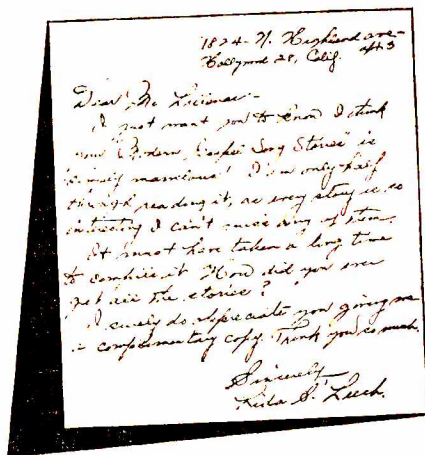 1824 - N. Highland ave -
Hollywood 28, Calif. apt 3
Dear Mr.
I just want you to know I think
your "Modern Gospel Song Stories" is
"simply marvelous". I am only half
through reading it, as every story is so
interesting I can't miss any of them.
It must have taken a long time
to compile it. How did you ever
get all the stories?
I surely do appreciate you giving me
a complimentary copy. Thank you so much.
Sincerely
Rida S. Leech.